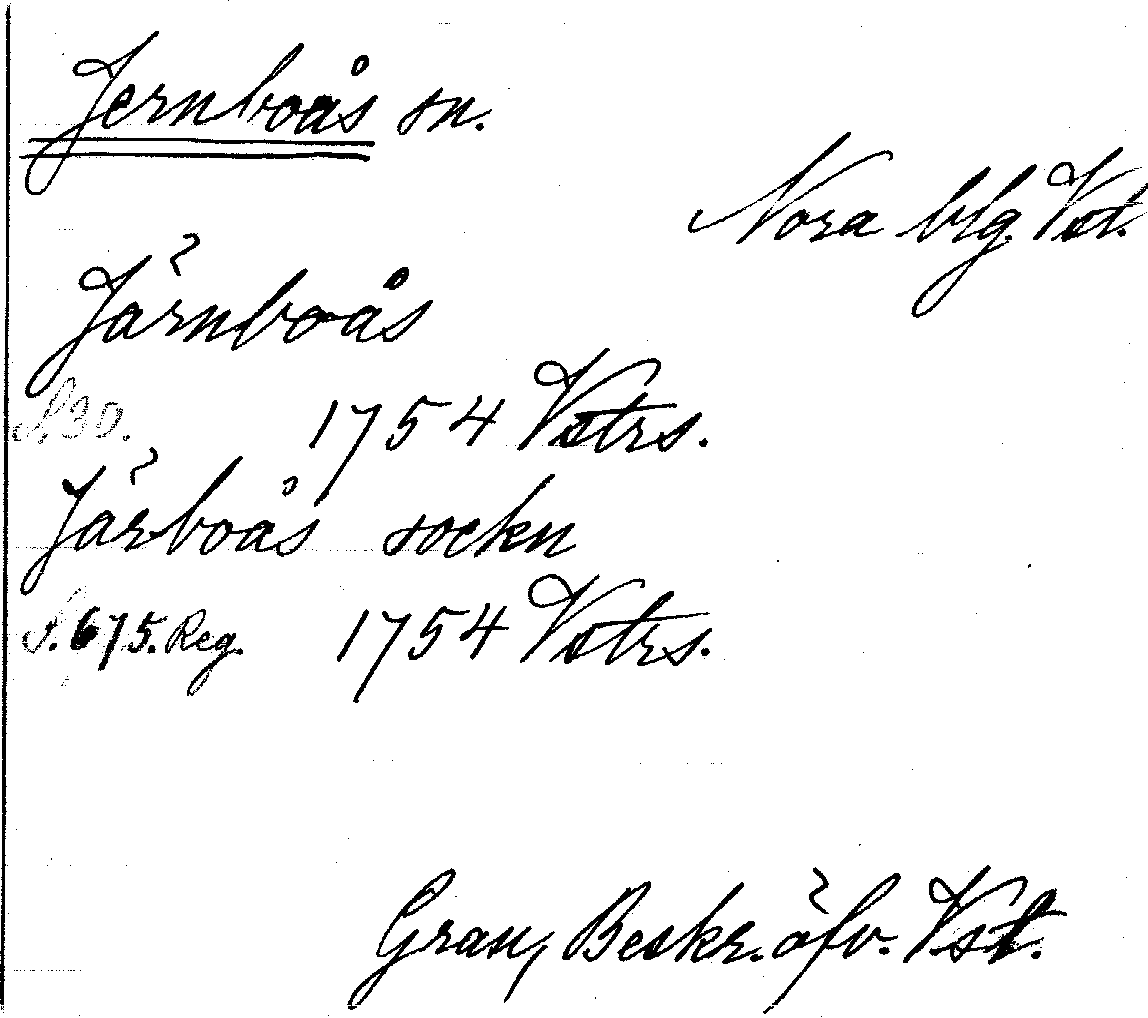 Jernboås sn.
Nora blg. Vst.
Järnboås
S. 30. 1754 Vstrs.
Järboås sockn
S. 675. Reg. 1754 Vstrs.
Grau, Beskr. öfv. Vst.